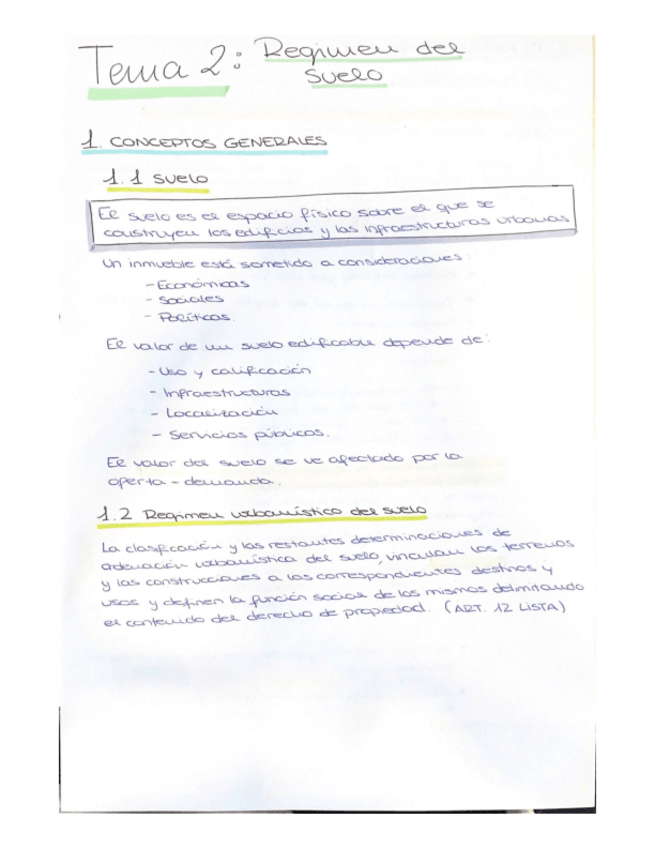 Tema 2: Regimen del
suelo
1. CONCEPTOS GENERALES
1.1 suelo
El suelo es el espacio físico sobre el que se
construyen los edificios y las infraestructuras urbanas
Un inmueble está sometido a consideraciones:
- Económicas
- Sociales
- Políticas.
El valor de un suelo edificable depende de:
- Uso y calificación
- Infraestructuras
- Localización
- Servicios públicos.
El valor del suelo se ve afectado por la
oferta - demanda.
1.2 Regimen urbanístico del suelo
La clasificación y las restantes determinaciones de
ordenación urbanística del suelo, vinculan los terrenos
y las construcciones a los correspondientes destinos y
usos y definen la función social de los mismos delimitando
el contenido del derecho de propiedad. (ART. 12 LISTA)